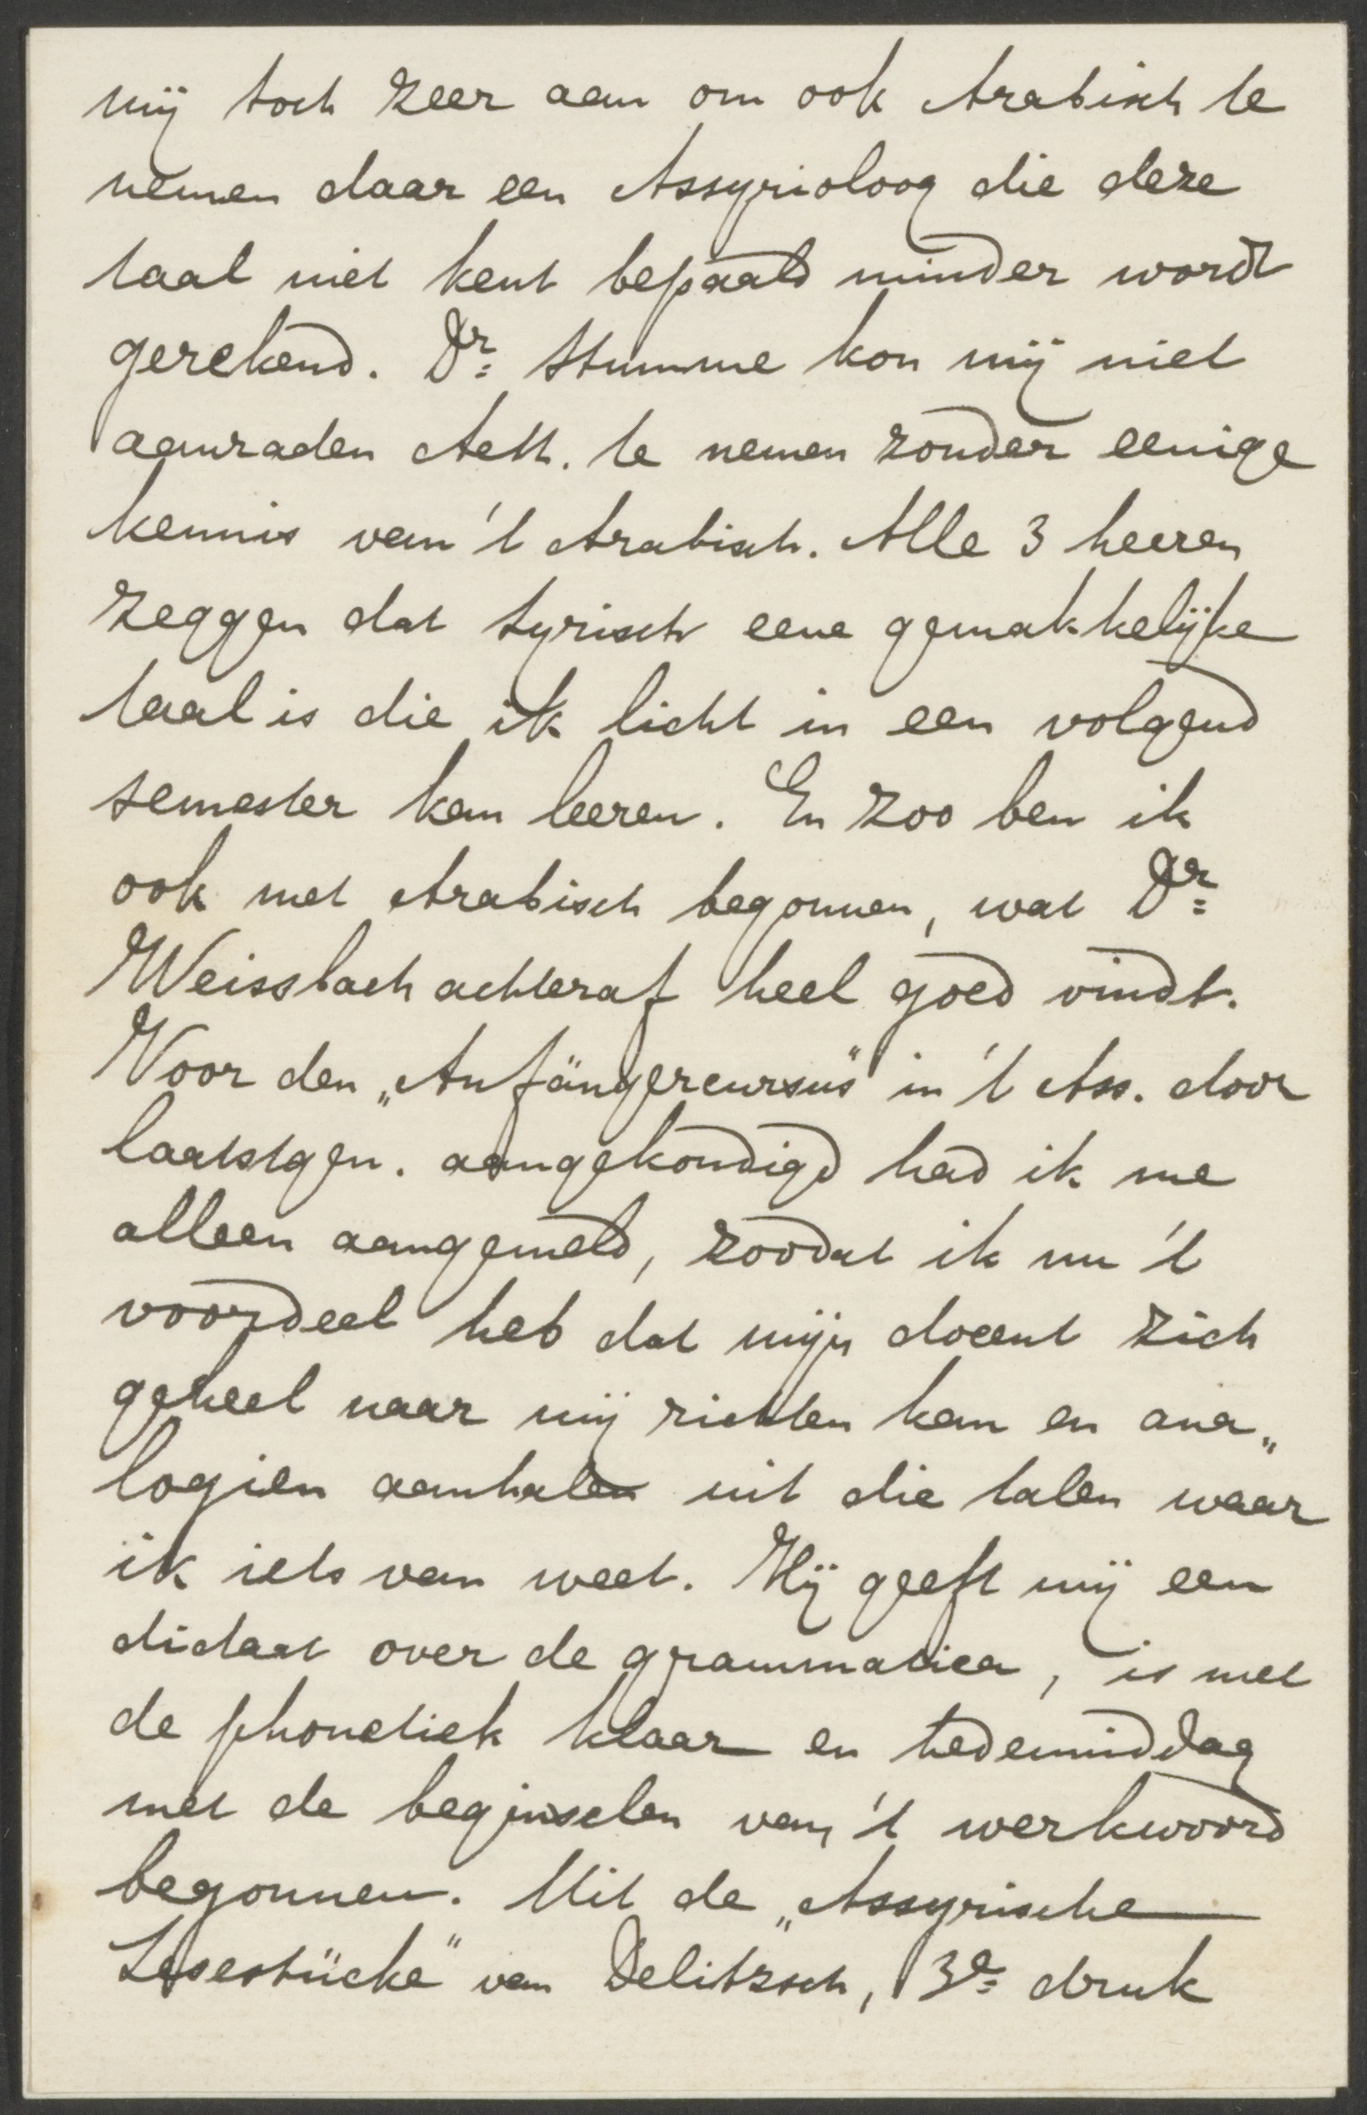 mij toch zeer aan om ook Arabisch te
nemen daar een Assyrioloog die deze
taal niet kent bepaald minder wordt
gerekend. Dr. Stumme kon mij niet
aanraden Aeth. te nemen zonder eenige
kennis van 't Arabisch. Alle 3 heeren
zeggen dat Syrisch eene gemakkelijke
taal is die ik licht in een volgend
semester kan leeren. En zoo ben ik
ook met Arabisch begonnen, wat Dr.
Weissbach achteraf heel goed vindt.
Voor den „Anfängercursus" in 't Ass. door
laatstgen. aangekondigd had ik me
alleen aangemeld, zoodat ik nu 't
voordeel heb dat mijn docent zich
geheel naar mij richten kan en ana„
logien aanhalen uit die talen waar
ik iets van weet. Hij geeft mij een
dictaat over de grammatica, is met
de phonetiek klaar en hedenmiddag
met de beginselen van 't werkwoord
begonnen. Uit de „Assyrische
Lesestücke" van Delitzsch, 3e druk